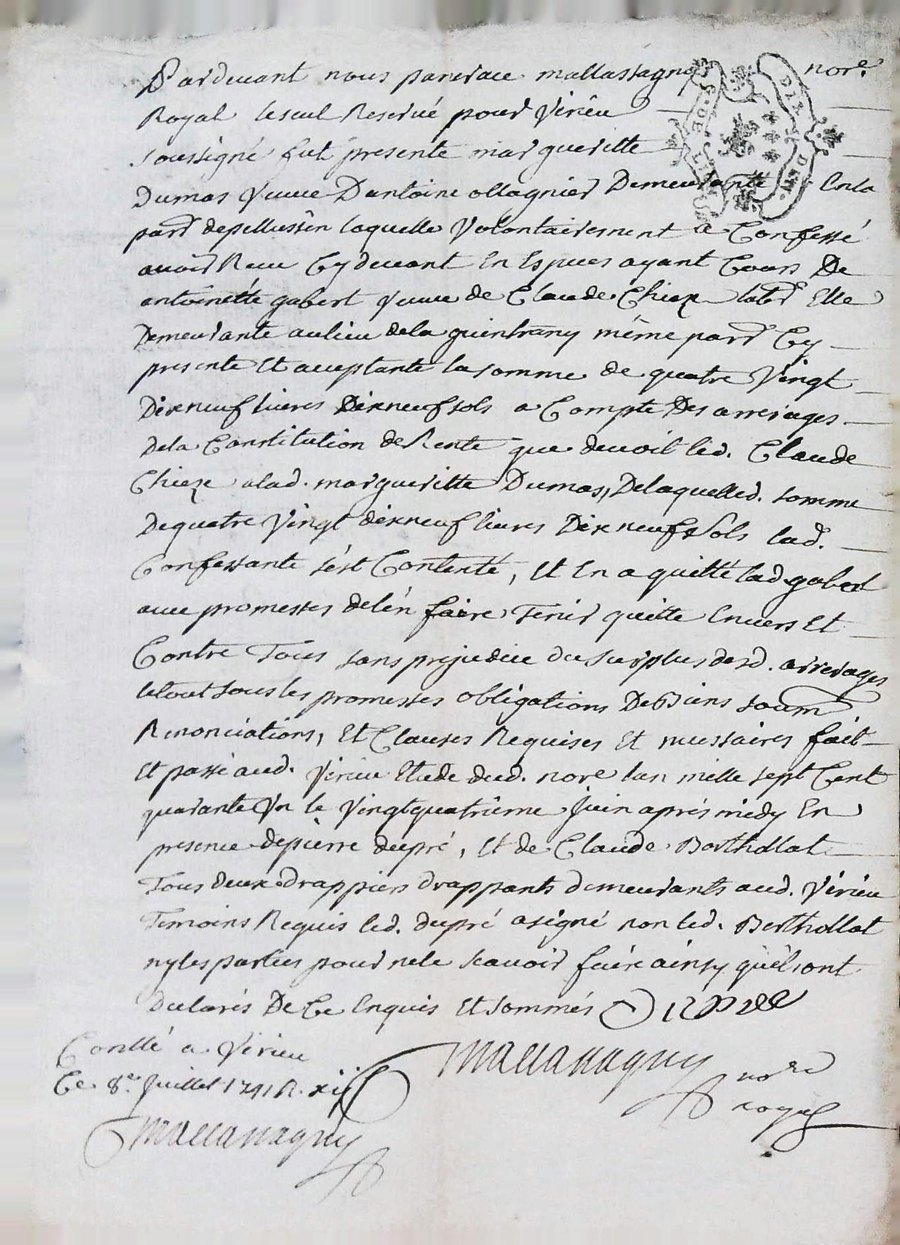 Pardevant nous pancrace mallassagny nore.
Royal le seul Reservé pour Virieu
soussigné fut presente margueritte
Dumas Veuve D'antoine ollagnier Demeurante En la
parr depellussin laquelle Volontairement a Confessé
avoir Receu Cy devant En Especes ayant Cours De
antoinette gabert Veuve de Claude Chieze labr Elle
Demeurante au lieu dela guintrany même parr Cy
presente Et acceptante la somme de quatre Vingt
Dixneuf livres Dixneuf sols a Compte Des arreirages
Dela Constitution de Rente que devoit led. Claude
Chieze a lad. margueritte Dumas, De laquelled. somme
De quatre Vingt dixneuf livres Dixneuf Sols lad.
Confessante s'est Contenté, Et En a quitté lad gabert
avec promesses de l'en faire Tenir quitte Envers Et
Contre Tous sans prejudice du surplus desd. arreirages
le tout sous les promesses obligations De Biens soum
Renonciations, Et Clauses Requises Et necessaires fait
Et passé aud. Virieu Etude dud. nore lan mille sept Cent
quarante Un le Vingtquatrieme Juin après midy En
presence de pierre dupré, Et de Claude Berthollat
Tous deux drappiers drappants demeurants aud. Virieu
Temoins Requis led. dupré a signé non led. Berthollat
ny les parties pour ne le scavoir faire ainsy qu'els ont
Declarés De Ce Enquis Et sommés
Conllé a Virieu
Ce 8e. Juillet 1741 R. xii s
Mallassagny
nore
royal
Mallassagny